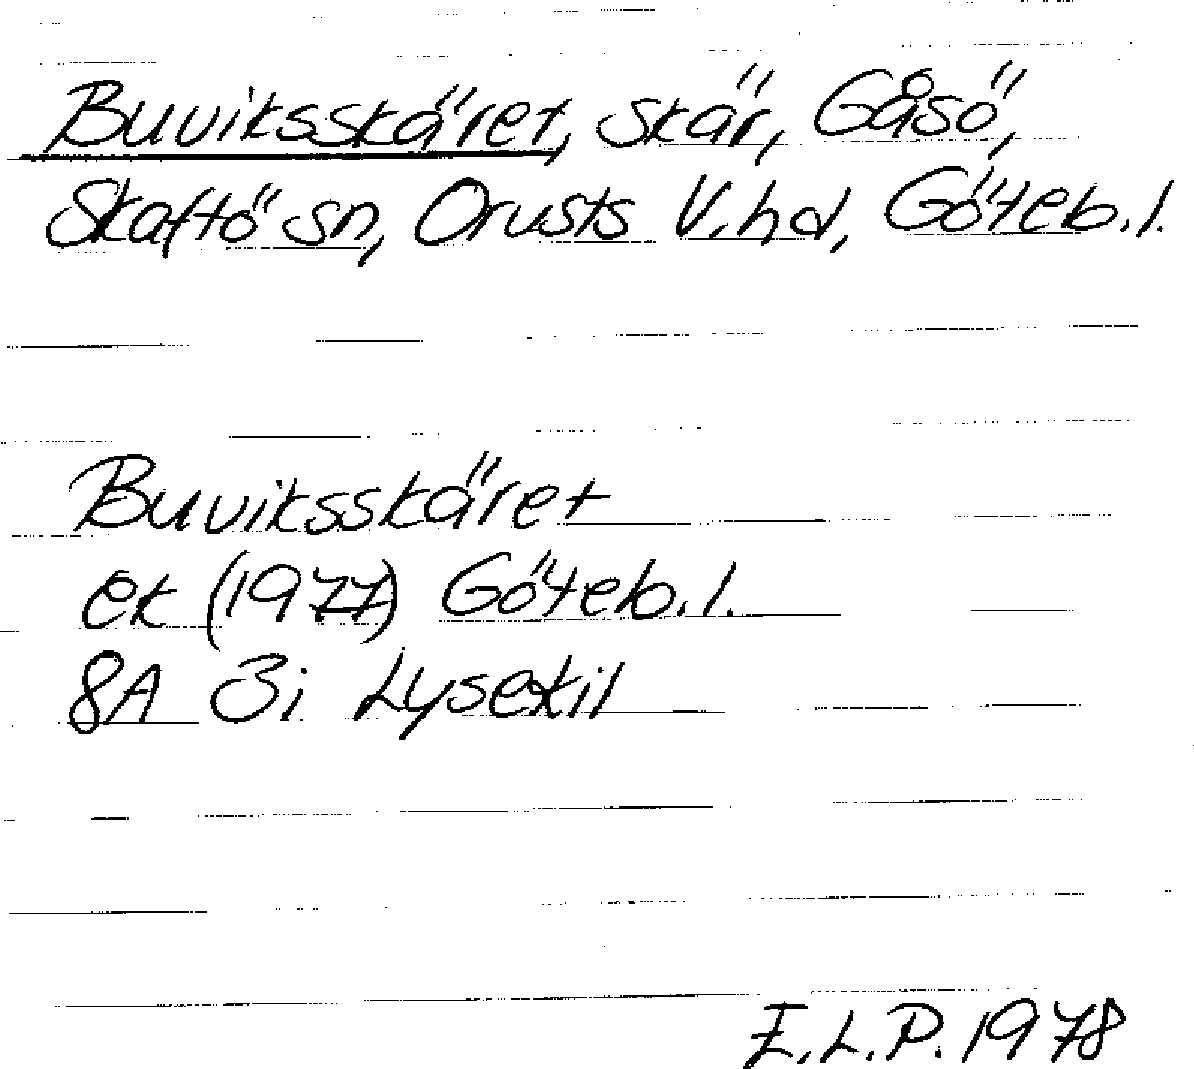 Buviksskäret, skär, Gåsö,
Skaftö sn, Orusts V. hd, Göteb. l.
Buviksskäret
ek (1977) Göteb. l.
8A 3i Lysekil
E.L.P. 1978